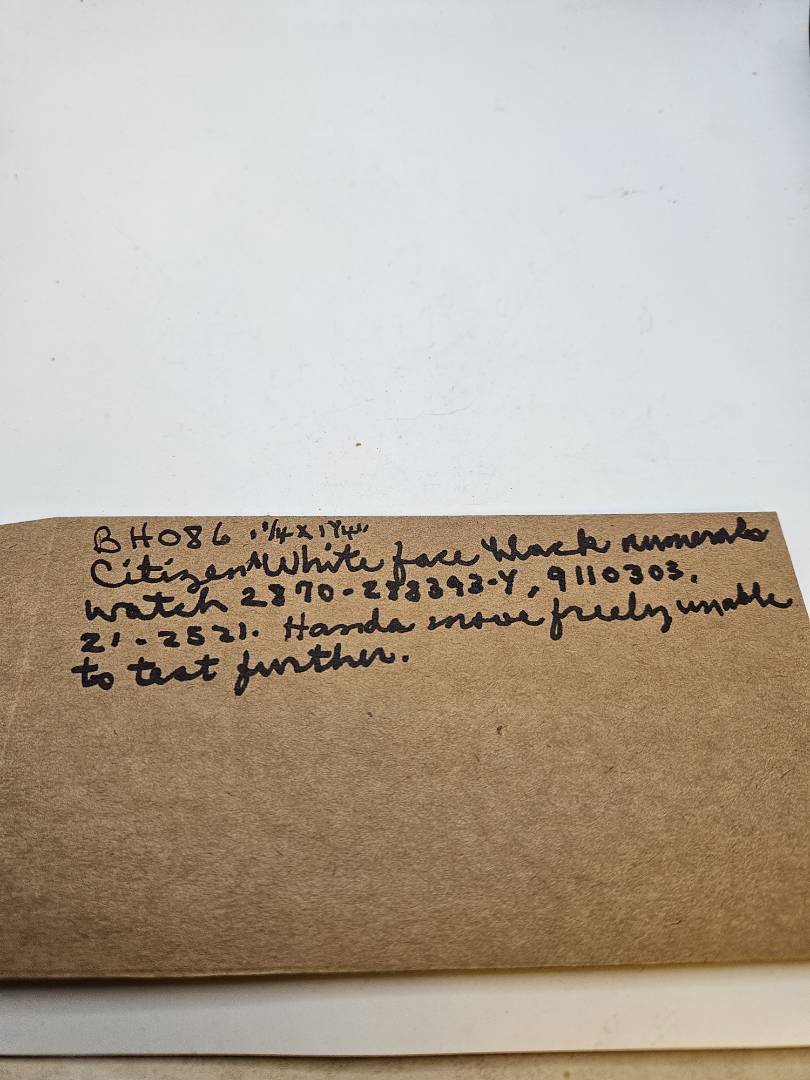 BH086 1 1/4 x 1 1/4"
Citizen White face black numerals
watch 2870-288393-Y, 9110303,
21-2521. Hands move freely unable
to test further.